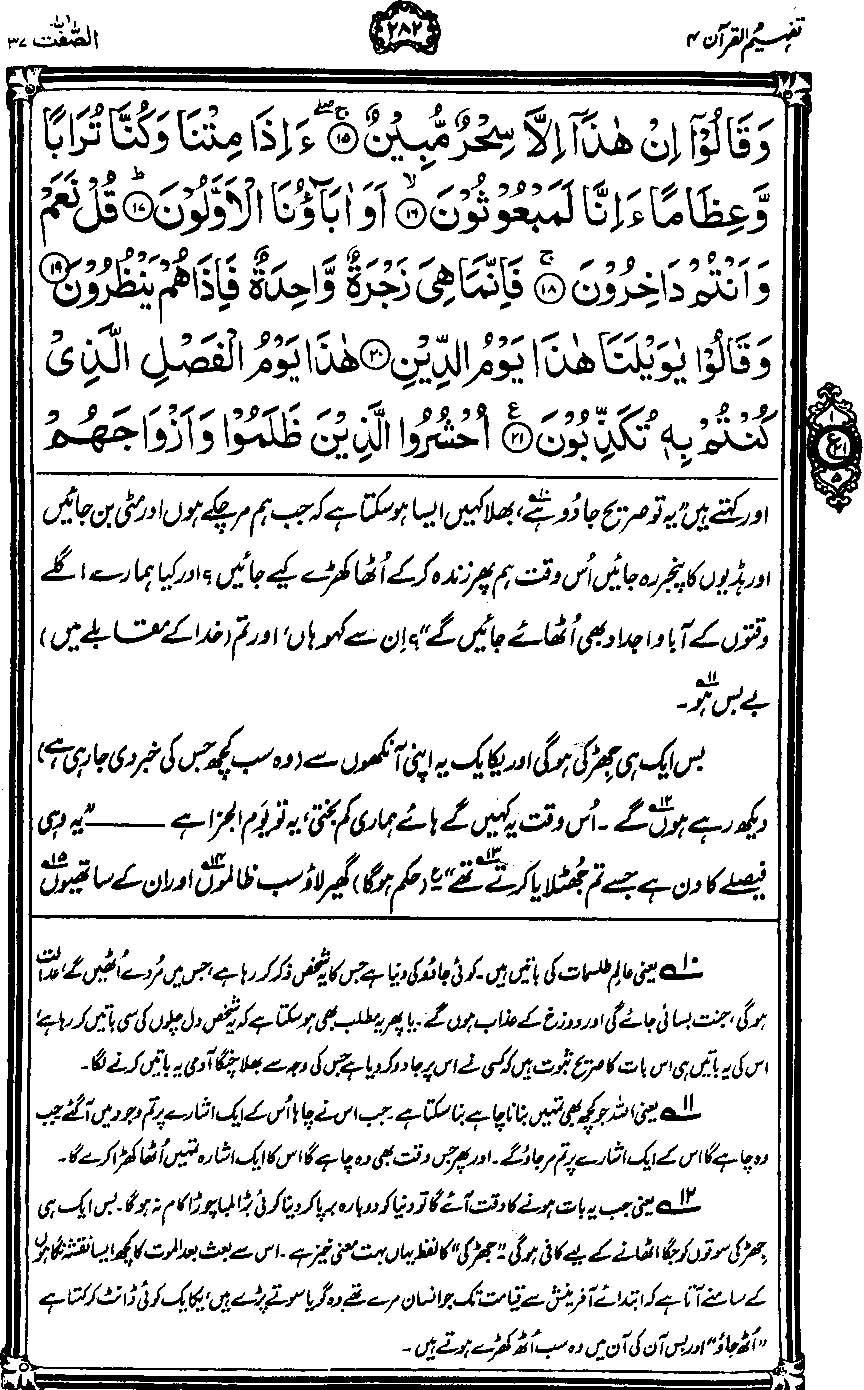 تفہیم القرآن ۴
۲۸۲
الصّٰفّٰت ۳۷
وَقَالُوْٓا اِنْ هٰذَآ اِلَّا سِحْرٌ مُّبِيْنٌ ۚۖ ۱۵ ءَاِذَا مِتْنَا وَكُنَّا تُرَابًا
وَّعِظَامًا ءَاِنَّا لَمَبْعُوْثُوْنَ ۙ ۱۶ اَوَ اٰبَآؤُنَا الْاَوَّلُوْنَ ؕ ۱۷ قُلْ نَعَمْ
وَاَنْتُمْ دَاخِرُوْنَ ۚ ۱۸ فَاِنَّمَا هِيَ زَجْرَةٌ وَّاحِدَةٌ فَاِذَا هُمْ يَنْظُرُوْنَ ۱۹
وَقَالُوْا يٰوَيْلَنَا هٰذَا يَوْمُ الدِّيْنِ ۲۰ هٰذَا يَوْمُ الْفَصْلِ الَّذِيْ
كُنْتُمْ بِهٖ تُكَذِّبُوْنَ ۧ ۲۱ اُحْشُرُوا الَّذِيْنَ ظَلَمُوْا وَاَزْوَاجَهُمْ
۱
ع ۲۱
۵
اور کہتے ہیں ”یہ تو صریح جادو ہے،۱۰ بھلا کہیں ایسا ہو سکتا ہے کہ جب ہم مر چکے ہوں اور مٹی بن جائیں
اور ہڈیوں کا پنجر رہ جائیں اُس وقت ہم پھر زندہ کر کے اُٹھا کھڑے کیے جائیں؟ اور کیا ہمارے اگلے
وقتوں کے آبا و اجداد بھی اُٹھائے جائیں گے“؟ اِن سے کہو ہاں، اور تم (خدا کے مقابلے میں)
بے بس ہو۔۱۱
بس ایک ہی جھڑکی ہو گی اور یکایک یہ اپنی آنکھوں سے (وہ سب کچھ جس کی خبر دی جا رہی ہے)
دیکھ رہے ہوں گے۱۲۔ اُس وقت یہ کہیں گے ہائے ہماری کم بختی، یہ تو یَوم الجزا ہے ——— ”یہ وہی
فیصلے کا دن ہے جسے تم جُھٹلایا کرتے تھے“۱۳ ع (حکم ہو گا) گھیر لاؤ سب ظالموں۱۴ اور ان کے ساتھیوں۱۵
۱۰ یعنی عالم طلسمات کی باتیں ہیں۔ کوئی جادو کی دنیا ہے جس کا یہ شخص ذکر کر رہا ہے، جس میں مُردے اُٹھیں گے، عدالت
ہو گی، جنت بسائی جائے گی اور دوزخ کے عذاب ہوں گے۔ یا پھر یہ مطلب بھی ہو سکتا ہے کہ یہ شخص دل چلوں کی سی باتیں کر رہا ہے،
اس کی یہ باتیں ہی اس بات کا صریح ثبوت ہیں کہ کسی نے اس پر جادو کر دیا ہے جس کی وجہ سے بھلا چنگا آدمی یہ باتیں کرنے لگا۔
۱۱ یعنی اللہ جو کچھ بھی تمہیں بنانا چاہے بنا سکتا ہے۔ جب اس نے چاہا اُس کے ایک اشارے پر تم وجود میں آ گئے جب
وہ چاہے گا اس کے ایک اشارے پر تم مر جاؤ گے۔ اور پھر جس وقت بھی وہ چاہے گا اس کا ایک اشارہ تمہیں اُٹھا کھڑا کرے گا۔
۱۲ یعنی جب یہ بات ہونے کا وقت آئے گا تو دنیا کو دوبارہ برپا کر دینا کوئی بڑا لمبا چوڑا کام نہ ہو گا۔ بس ایک ہی
جھڑکی سوتوں کو جگا اٹھانے کے لیے کافی ہو گی۔ ”جھڑکی“ کا لفظ یہاں بہت معنی خیز ہے۔ اس سے بعث بعد الموت کا کچھ ایسا نقشہ نگاہوں
کے سامنے آتا ہے کہ ابتدائے آفرینش سے قیامت تک جو انسان مرے تھے وہ گویا سوتے پڑے ہیں، یکایک کوئی ڈانٹ کر کہتا ہے
”اُٹھ جاؤ“ اور بس آن کی آن میں وہ سب اُٹھ کھڑے ہوتے ہیں۔